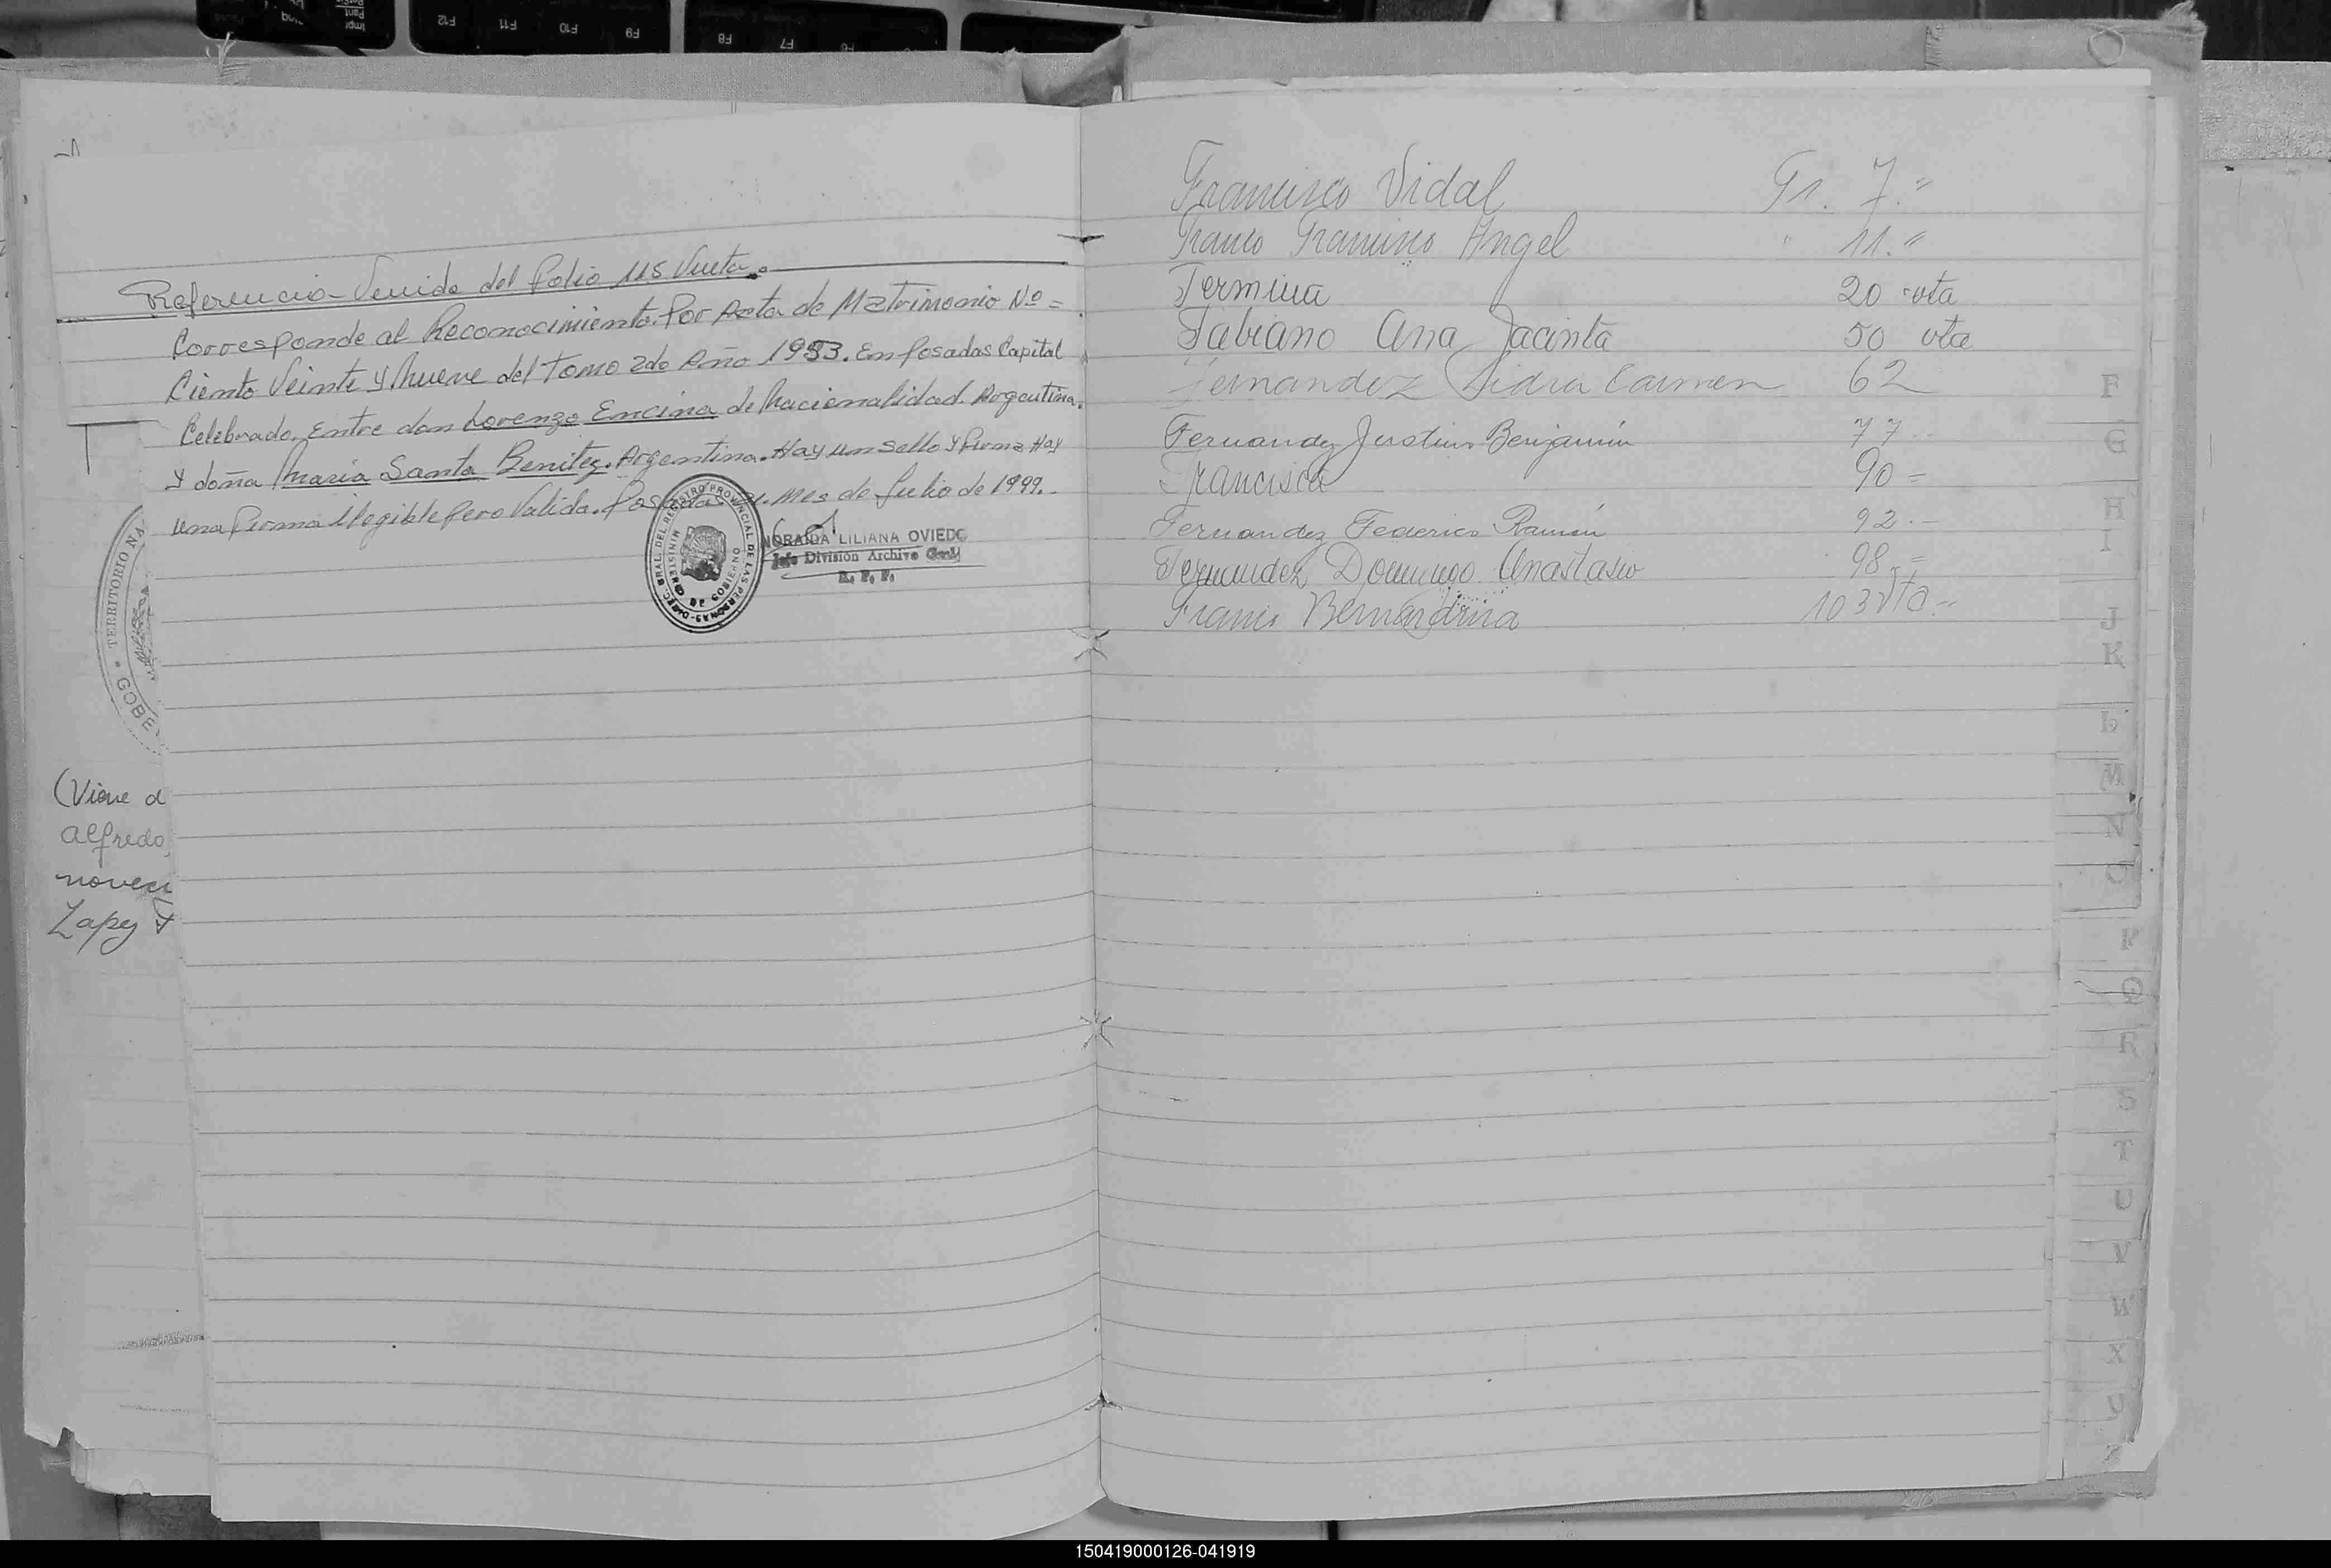 Referencia - Venida del folio 115 Vuelta.
Corresponde al Reconocimiento. Por Acta de Matrimonio Nº =
Ciento Veinte y Nueve del tomo 2do Año 1953. En Posadas Capital
Celebrado. Entre don Lorenzo Encina de Nacionalidad. Argentina.
y doña Maria Santa Benitez. Argentina. Hay un sello y firma Hay
una firma ilegible pero Valida. Posadas mes de Julio de 1999.
NORAIDA LILIANA OVIEDO
Jefe División Archivo Gral.
R. P. P.
DIREC. GRAL. DEL REGISTRO PROVINCIAL DE LAS PERSONAS
MINISTERIO DE GOBIERNO
TERRITORIO NA
GOBE
(Viene d
Alfredo,
noveci
Zapey
Francisco Vidal Fs. 7."
Franco Francisco Angel " 11."
Fermina 20 vta
Fabiano Ana Jacinta 50 vta
Fernandez Carmen 62
Fernandez Justino Benjamín 77
Francisca 90 =
Fernandez Federico Ramón 92.-
Fernandez Domingo Anastasio 98.=
Franis Bernardina 103 vta.-
F
G
H
I
J
K
L
M
N
O
P
Q
R
S
T
U
V
W
X
150419000126-041919